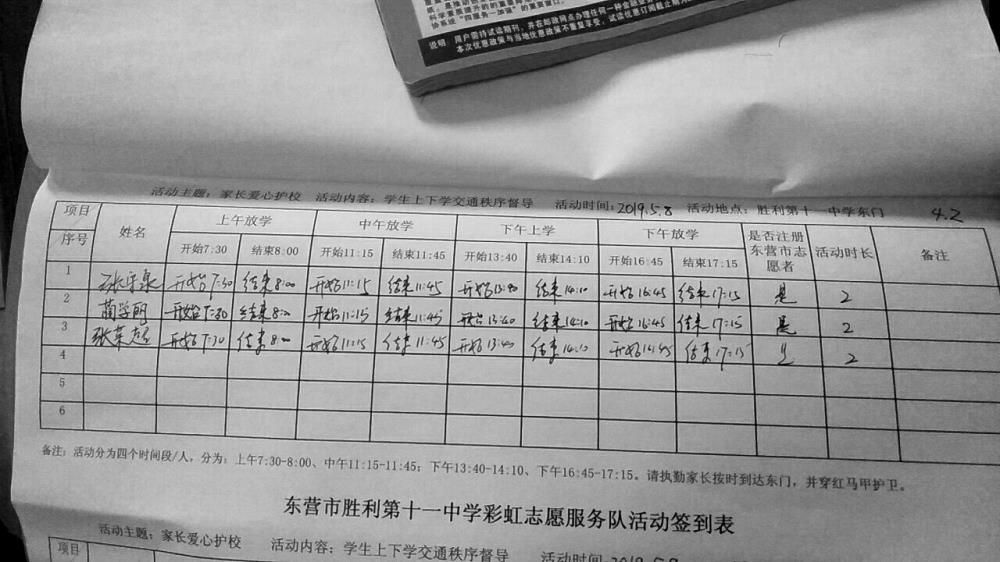 科学发展提升的重要
协系统“四服务一加强”的重要窗口。
说明 用户需待试读期刊，并在邮政网点办理任何一种金融业
本次优惠政策与当地优惠政策不重复享受，试读优惠订阅截止期为
活动主题：家长爱心护校 活动内容：学生上下学交通秩序督导 活动时间：2019.5.8 活动地点：胜利第十一中学东门 4.2
项目 序号 姓名 上午放学 中午放学 下午上学 下午放学 是否注册东营市志愿者 活动时长 备注
开始7:30 结束8:00 开始11:15 结束11:45 开始13:40 结束14:10 开始16:45 结束17:15
1 开始7:30 结束8:00 开始11:15 结束11:45 开始13:40 结束14:10 开始16:45 结束17:15 是 2
2 开始7:30 结束8:00 开始11:15 结束11:45 开始13:40 结束14:10 开始16:45 结束17:15 是 2
3 张荣超 开始7:30 结束8:00 开始11:15 结束11:45 开始13:40 结束14:10 开始16:45 结束17:15 是 2
4
5
6
备注：活动分为四个时间段/人，分为：上午7:30-8:00、中午11:15-11:45；下午13:40-14:10、下午16:45-17:15。请执勤家长按时到达东门，并穿红马甲护卫。
东营市胜利第十一中学彩虹志愿服务队活动签到表
活动主题：家长爱心护校 活动内容：学生上下学交通秩序督导 活动时间 2019.5.8
项目